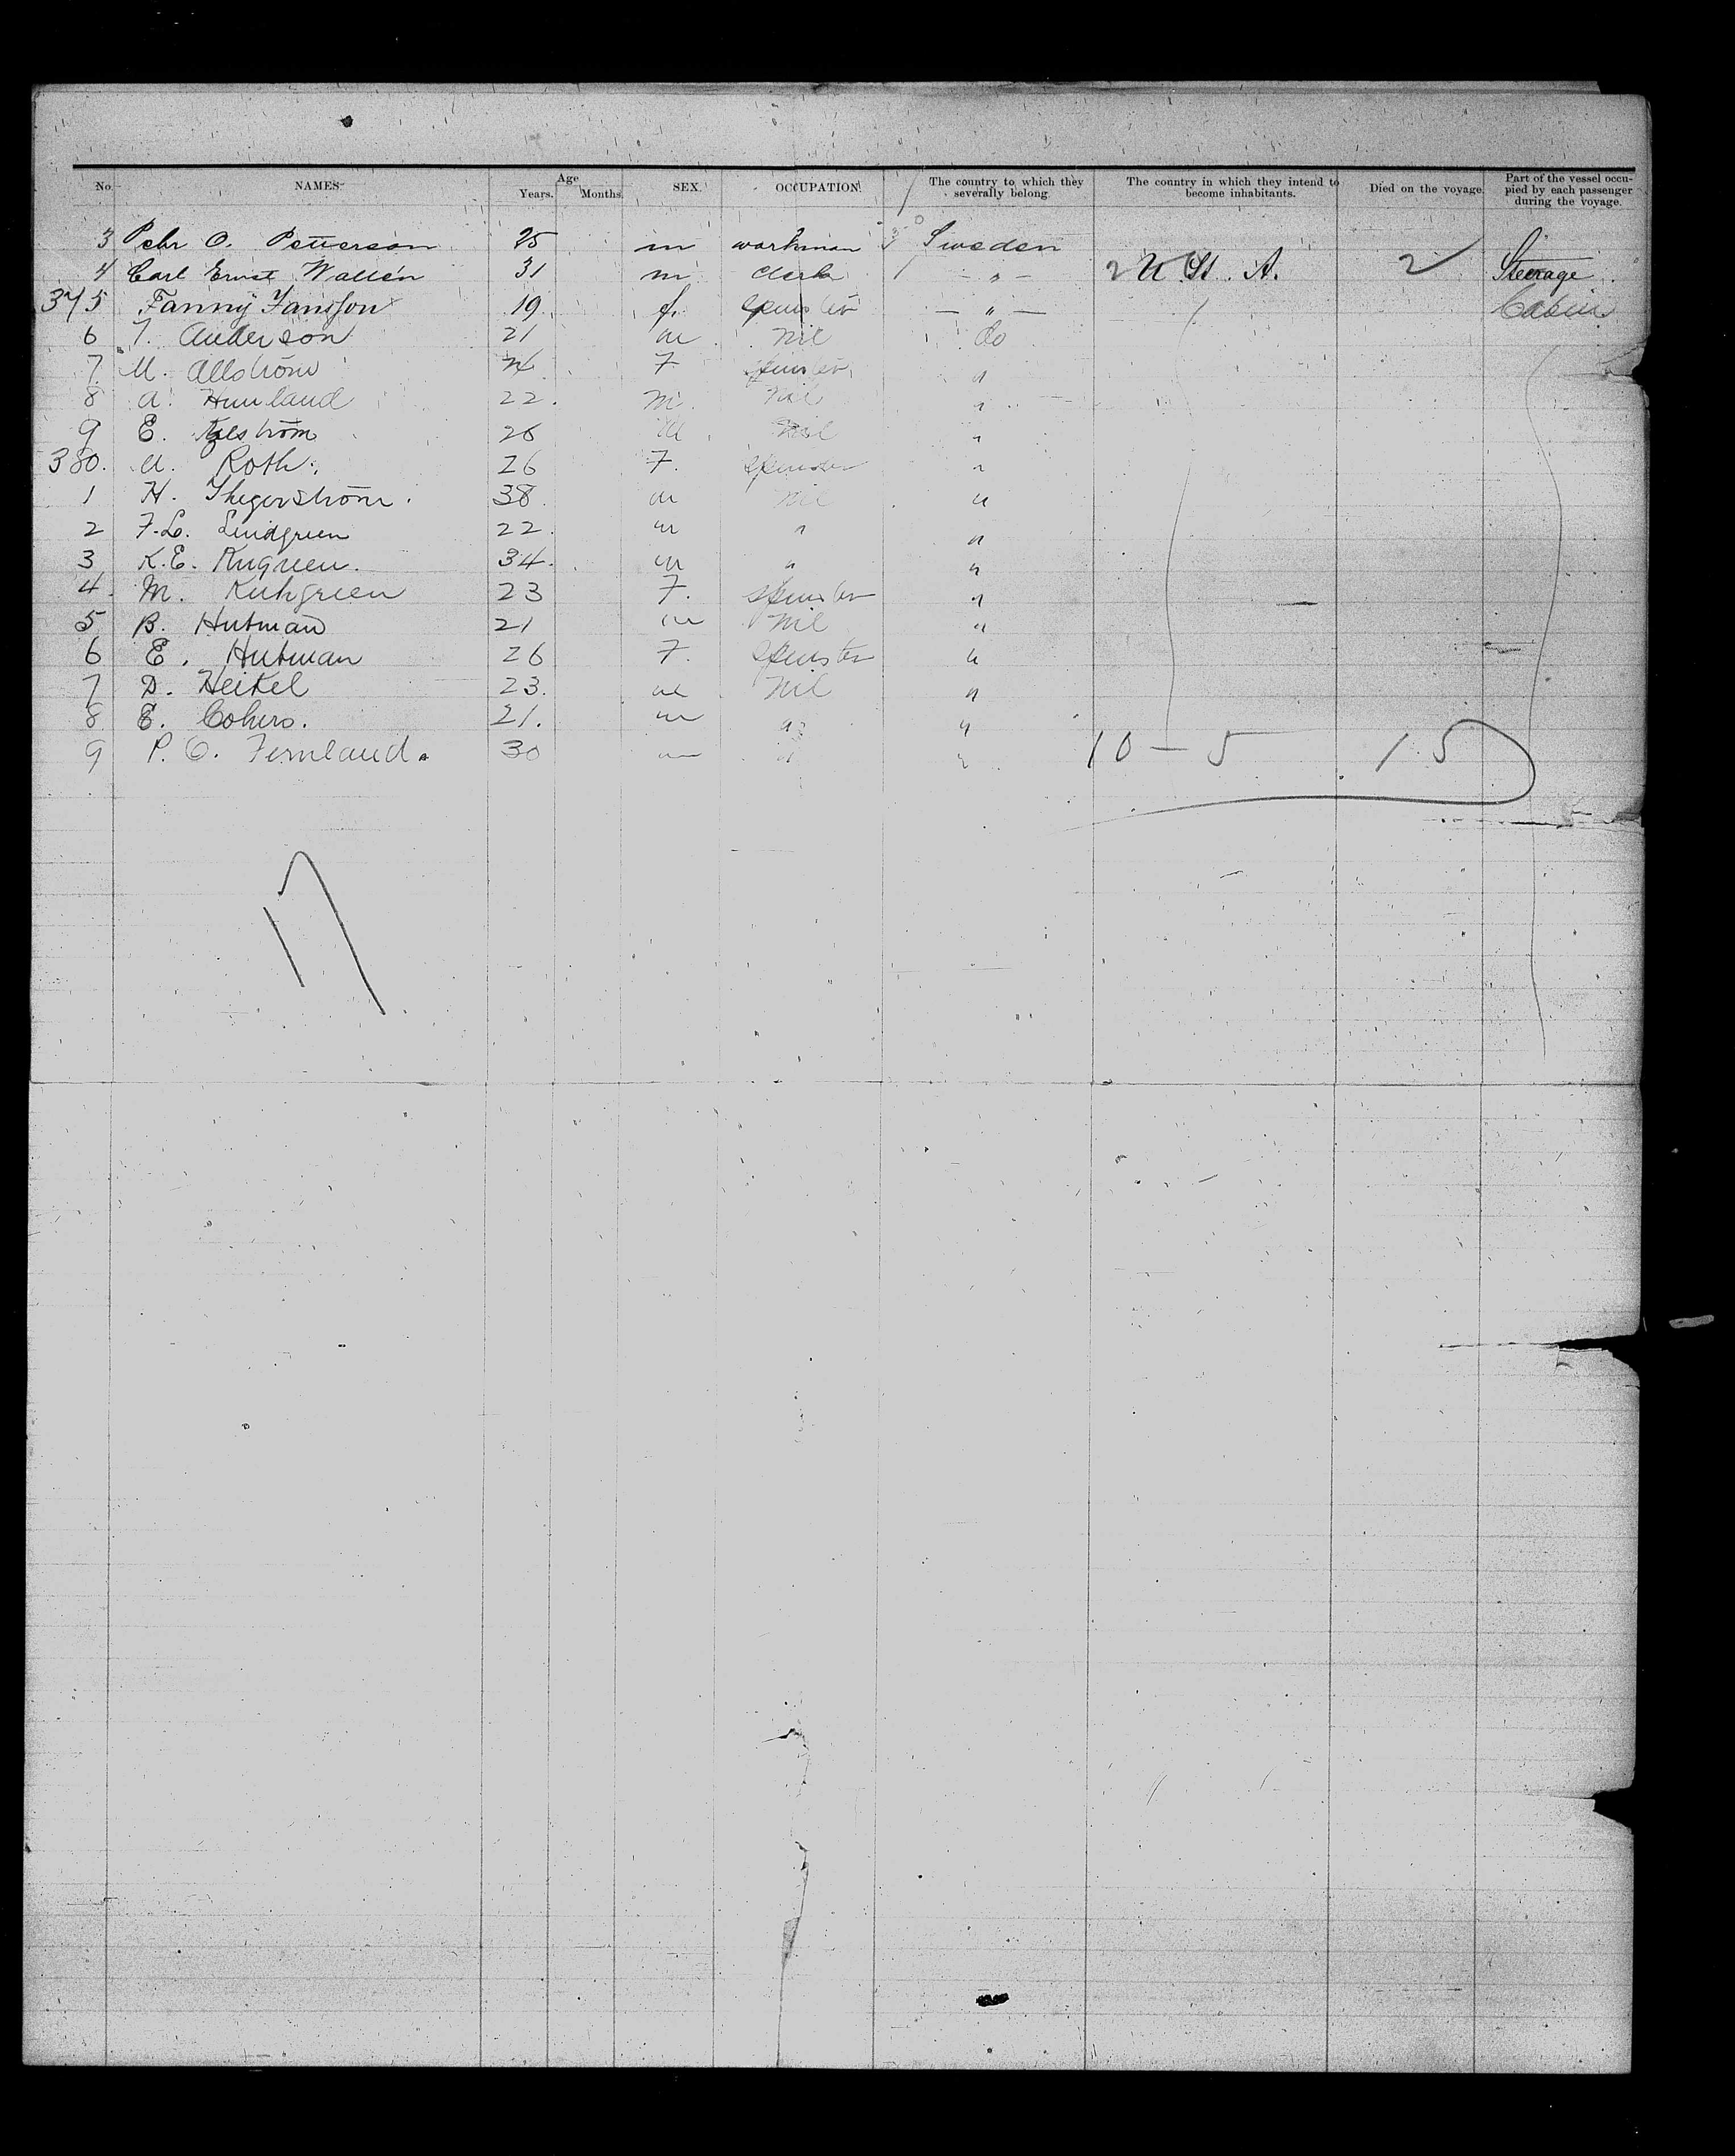 No. NAMES Age Years. Months. SEX. OCCUPATION. The country to which they severally belong. The country in which they intend to become inhabitants. Died on the voyage. Part of the vessel occupied by each passenger during the voyage.
3 Pehr O. Petterson 25 m workman Sweden
4 Carl Ernst Wallén 31 m Clerk " 2 U. St. A. 2 Steerage
375 Fanny Jansson 19 f. Spinster " Cabin
6 T. Anderson 21 m Nil do
7 M. Allström F Spinster "
8 A. 22. M. Nil "
9 E. 26 M Nil "
380. A. Roth. 26 F. Spinster "
1 H. Thegerström. 38. m Nil "
2 F. L. Lindgreen 22. m " "
3 K. E. 34. m " "
4. M. 23 F. Spinster "
5 B. Hutman 21 m Nil "
6 E. Hutman 26 F. Spinster "
7 D. Heikel 23. m Nil "
8 E. Cohers. 21. m " "
9 P. O. Fernland. 30 m " " 10 — 5 15
17